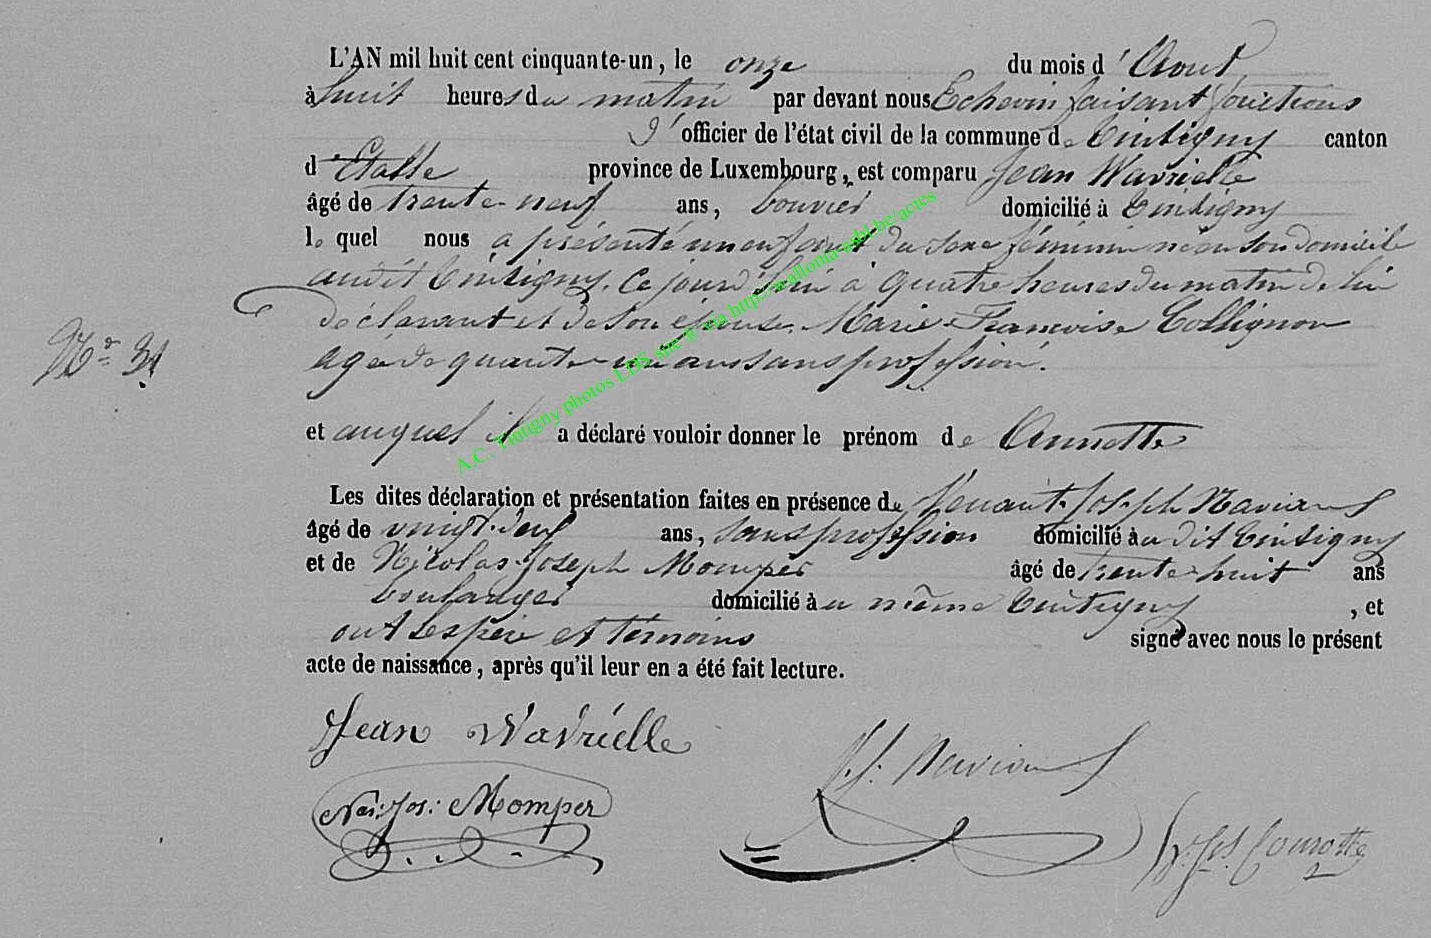 L'AN mil huit cent cinquante-un, le onze du mois d'Aout
à huit heures du matin par devant nous Echevin faisant fonctions
d'officier de l'état civil de la commune de Tintigny canton
d'Etalle province de Luxembourg, est comparu Jean Wavrielle
âgé de trente-neuf ans, bouvier domicilié à Tintigny
lequel nous a présenté un enfant du sexe féminin né en son domicile
audit Tintigny. Ce jourd'hui à quatre heures du matin de lui
déclarant et de son épouse Marie-Francoise Collignon
Nº 31
agée de quarante un ans sans profession.
et auquel il a déclaré vouloir donner le prénom de Annette
Les dites déclaration et présentation faites en présence de Joseph Naviaux
âgé de vingt-neuf ans, sans profession domicilié audit Tintigny
et de Nicolas-Joseph Momper âgé de trente-huit ans
boulanger domicilié au même Tintigny, et
ont les père et témoins signé avec nous le présent
acte de naissance, après qu'il leur en a été fait lecture.
Jean Wavrielle
J. Naviaux
Nas: Jos: Momper
A.C. Tintigny photos LDS, site @ via http://wallonia-asbl.be/actes